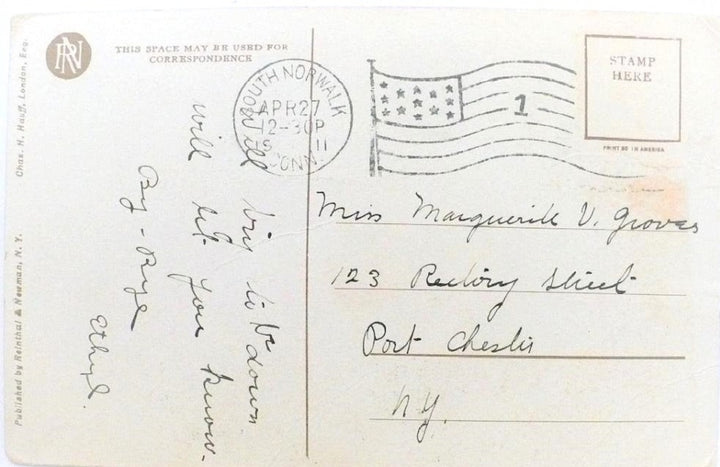 RN
THIS SPACE MAY BE USED FOR
CORRESPONDENCE
Chas. H. Hauff, London, Eng.
Published by Reinthal & Newman, N. Y.
SOUTH NORWALK
APR 27
12-30P
11
CONN.
1
STAMP
HERE
PRINTED IN AMERICA
Will try to be down
will let you know.
By-Bye
Ethyl.
Miss Marguerite V. Groves
123 Rectory Street
Port Chester
N.Y.